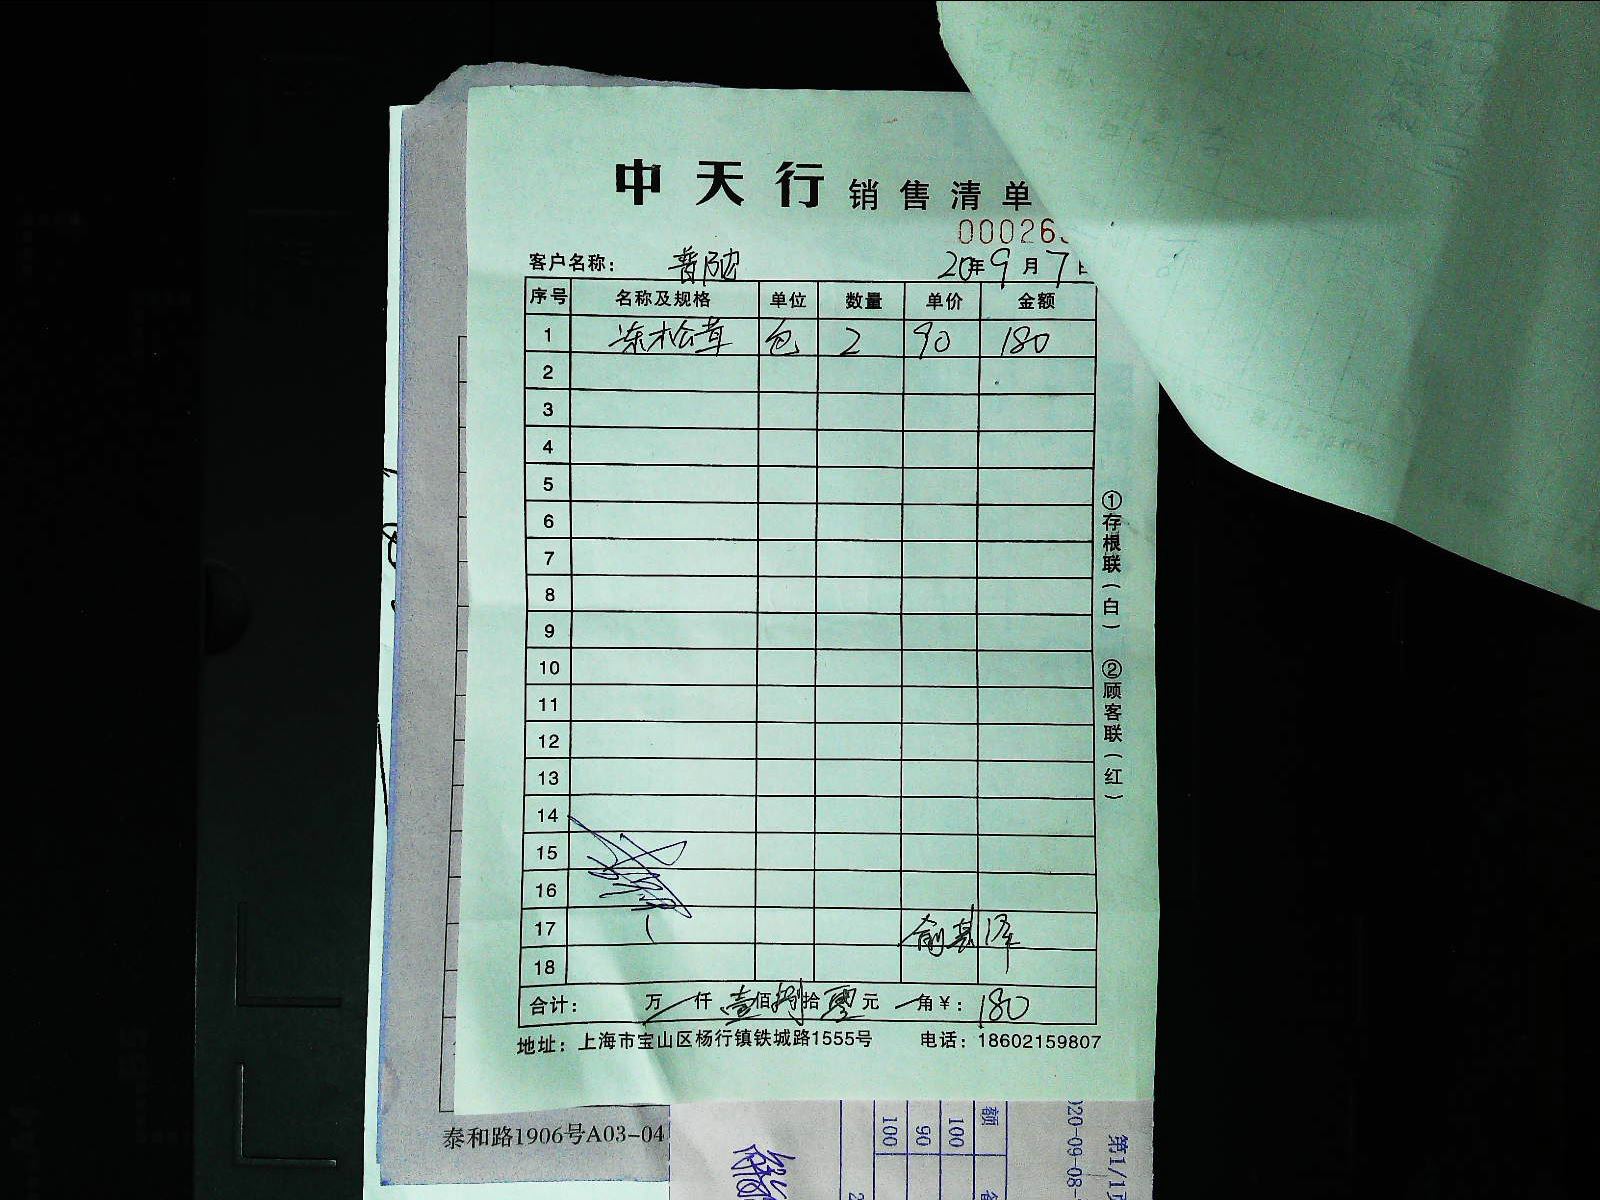 中天行 销售清单
000263
客户名称： 普陀 20年9月7日
序号 名称及规格 单位 数量 单价 金额
1 冻松茸 包 2 90 180
2
3
4
5
6
7
8
9
10
11
12
13
14
15
16
17 俞其泽
18
合计： 万 仟 壹佰捌拾零元 角￥：180
地址：上海市宝山区杨行镇铁城路1555号 电话：18602159807
①存根联（白） ②顾客联（红）
泰和路1906号A03-04
额
100
90
100
020-09-08
第1/1页